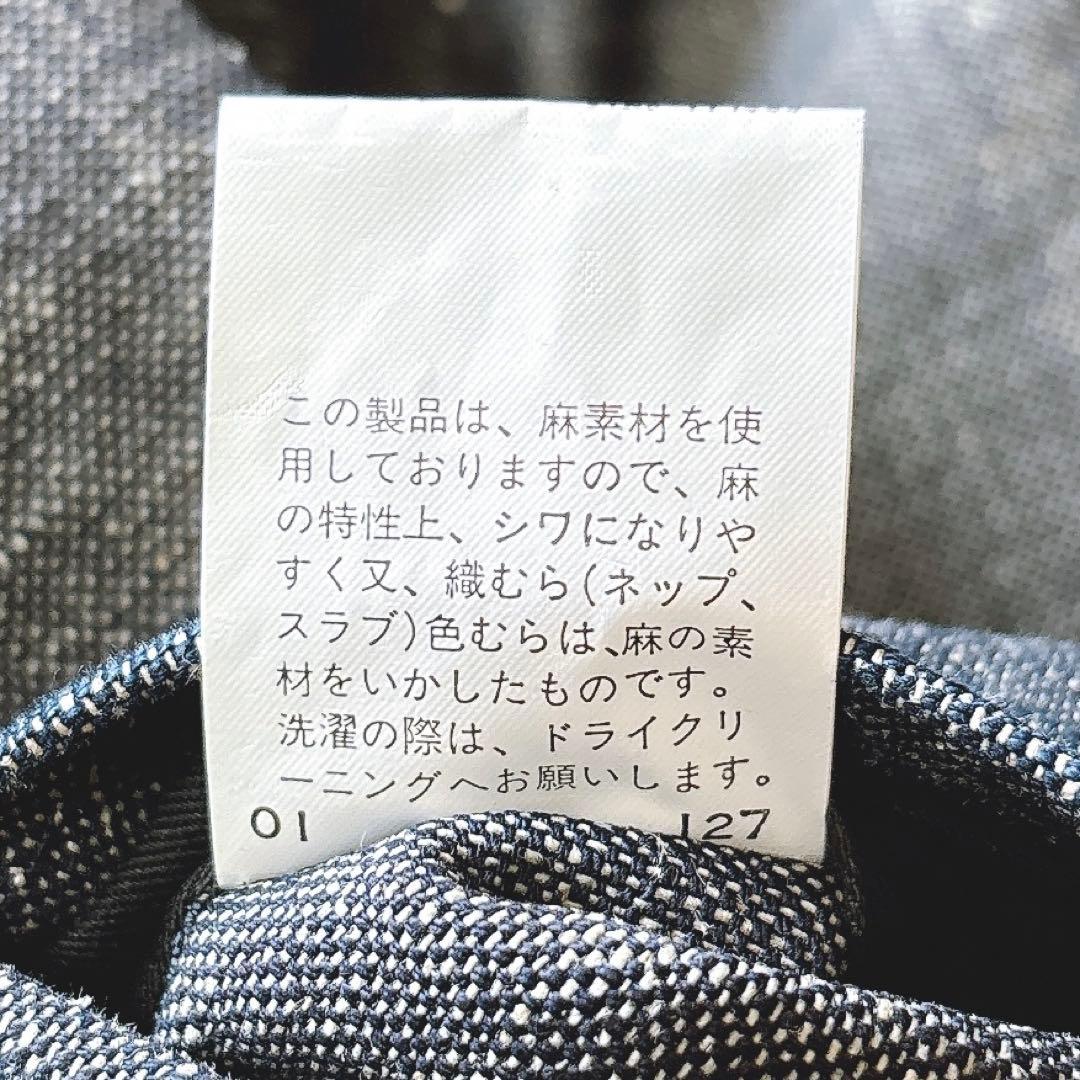 この製品は、麻素材を使
用しておりますので、麻
の特性上、シワになりや
すく又、織むら(ネップ、
スラブ)色むらは、麻の素
材をいかしたものです。
洗濯の際は、ドライクリ
ーニングへお願いします。
01 127